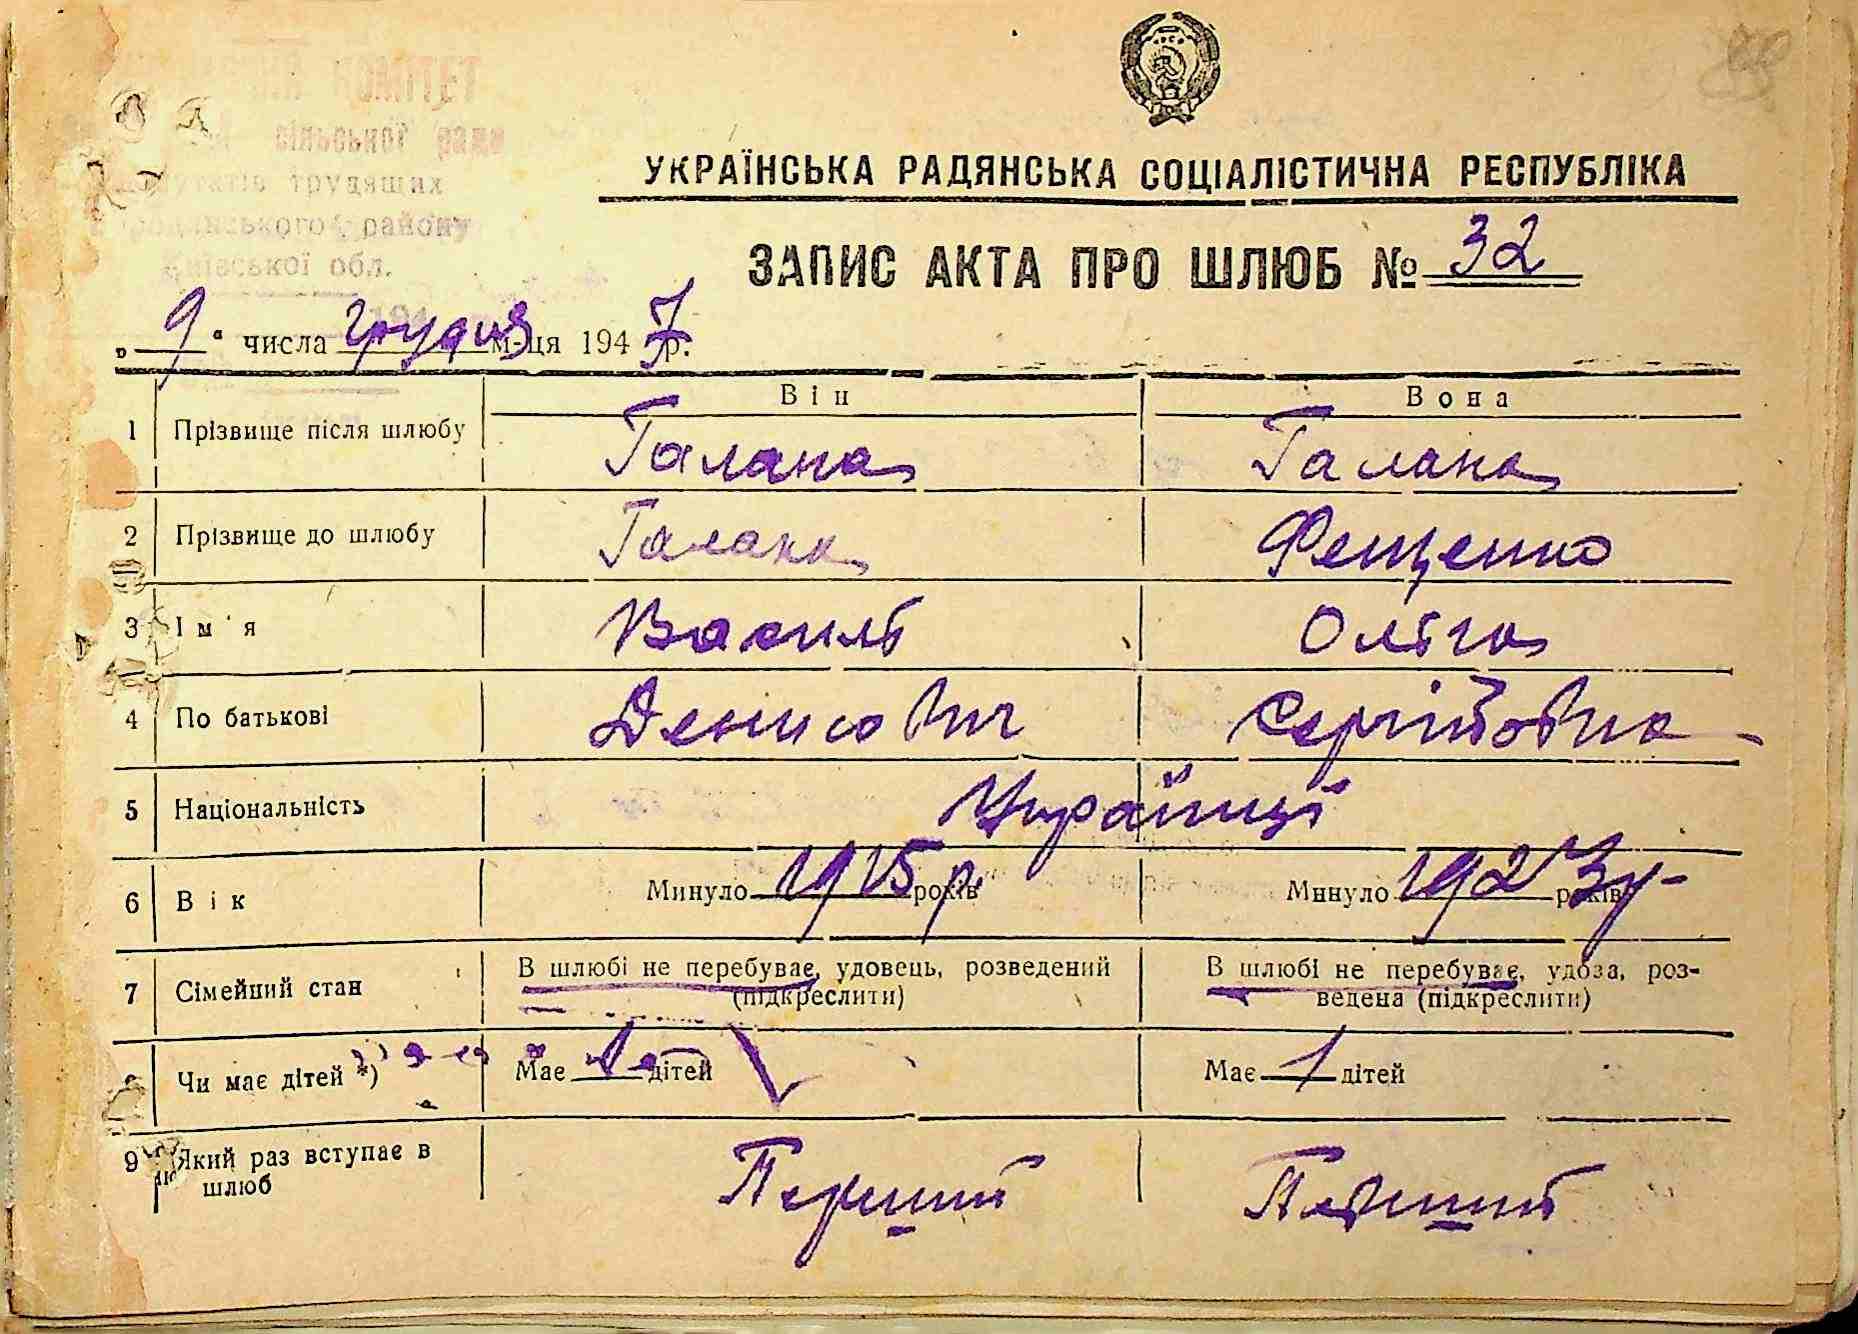 КОМІТЕТ
сільської ради
депутатів трудящих
району
Київської обл.
УКРАЇНСЬКА РАДЯНСЬКА СОЦІАЛІСТИЧНА РЕСПУБЛІКА
ЗАПИС АКТА ПРО ШЛЮБ № 32
„ 9 " числа грудня м-ця 1947 р.
Він Вона
1 Прізвище після шлюбу Галака Галака
2 Прізвище до шлюбу Галака Фещенко
3 Ім'я Василь Ольга
4 По батькові Денисович Сергійовна
5 Національність Українці
6 Вік Минуло 1915 р. років Минуло 1923 р років
7 Сімейний стан В шлюбі не перебуває, удовець, розведений (підкреслити) В шлюбі не перебуває, удова, роз-
ведена (підкреслити)
8 Чи має дітей *) Має дітей Має 1 дітей
9 Який раз вступає в шлюб Перший Перший